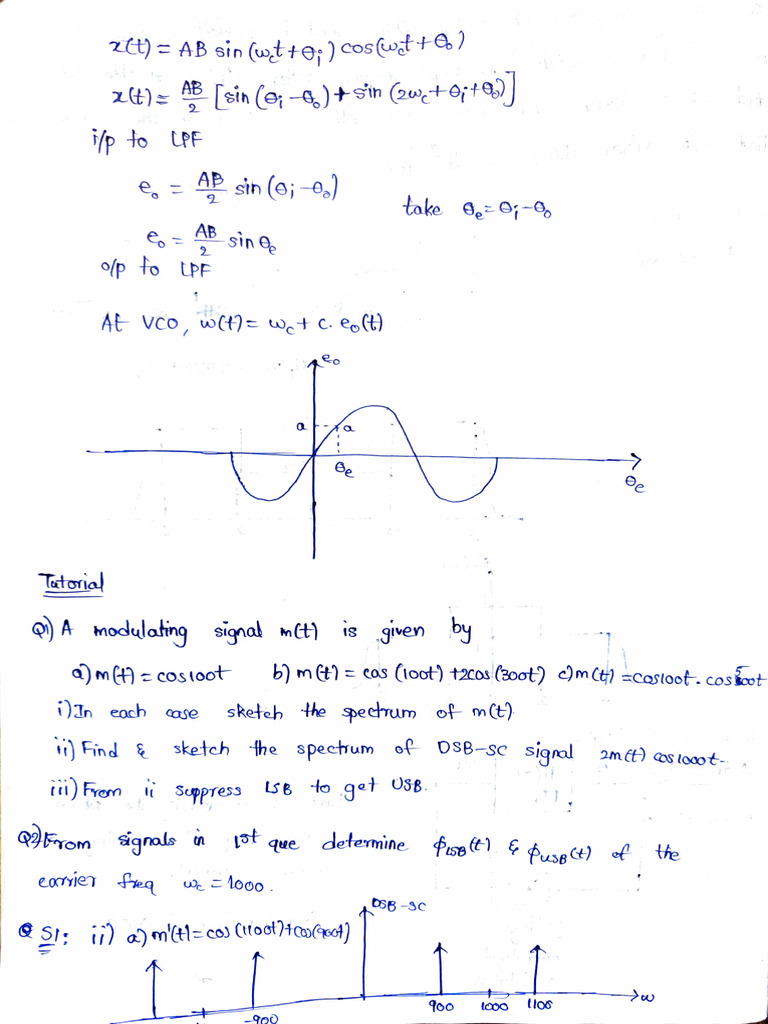 x(t) = AB sin(ωct+θi) cos(ωct+θo)
x(t) = AB/2 [sin(θi-θo)+sin(2ωc+θi+θo)]
i/p to LPF
eo = AB/2 sin(θi-θo)
take θe=θi-θo
eo = AB/2 sinθe
o/p to LPF
At VCO, ω(t)= ωc+ c.eo(t)
eo
a
a
θe
θe
Tutorial
Q1) A modulating signal m(t) is given by
a) m(t) = cos100t b) m(t) = cos(100t)+2cos(300t) c) m(t) =cos100t.cos500t
i) In each case sketch the spectrum of m(t)
ii) Find & sketch the spectrum of DSB-SC signal 2m(t) cos1000t.
iii) From ii suppress LSB to get USB.
Q2) From signals in 1st que determine φLSB(t) & φUSB(t) of the
carrier freq ωc =1000.
S1: ii) a) m'(t)=cos(1100t)+cos(900t)
DSB-SC
-900
900 1000 1100
ω